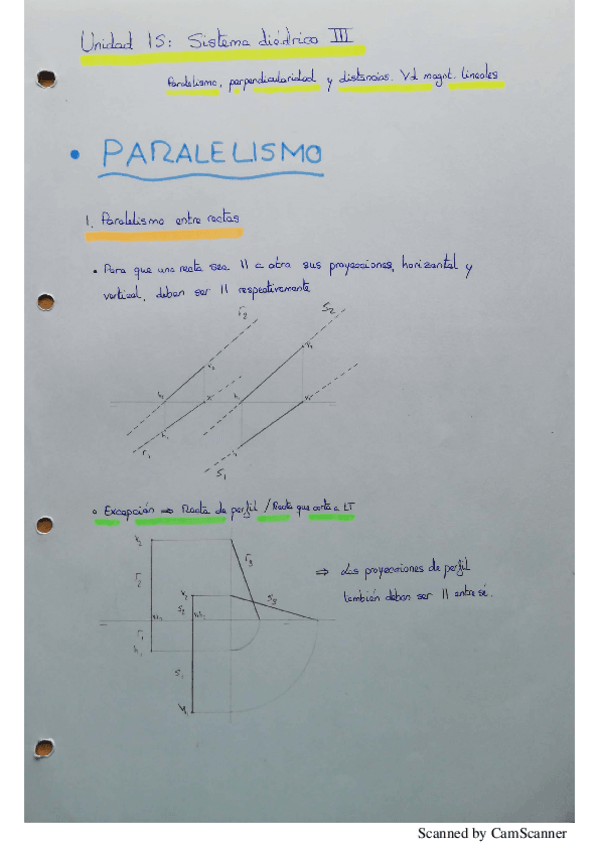 Unidad 15: Sistema diédrico III
Paralelismo, perpendicularidad y distancias. Vd. magnt. lineales
• PARALELISMO
1. Paralelismo entre rectas
• Para que una recta sea || a otra sus proyecciones, horizontal y
vertical, deben ser || respectivamente
r₂ s₂
r₁
s₁
• Excepción ⇒ Recta de perfil / Recta que corta a LT
r₂ r₃
⇒ Las proyecciones de perfil
s₂ s₃
también deben ser || entre sí.
r₁
s₁
Scanned by CamScanner